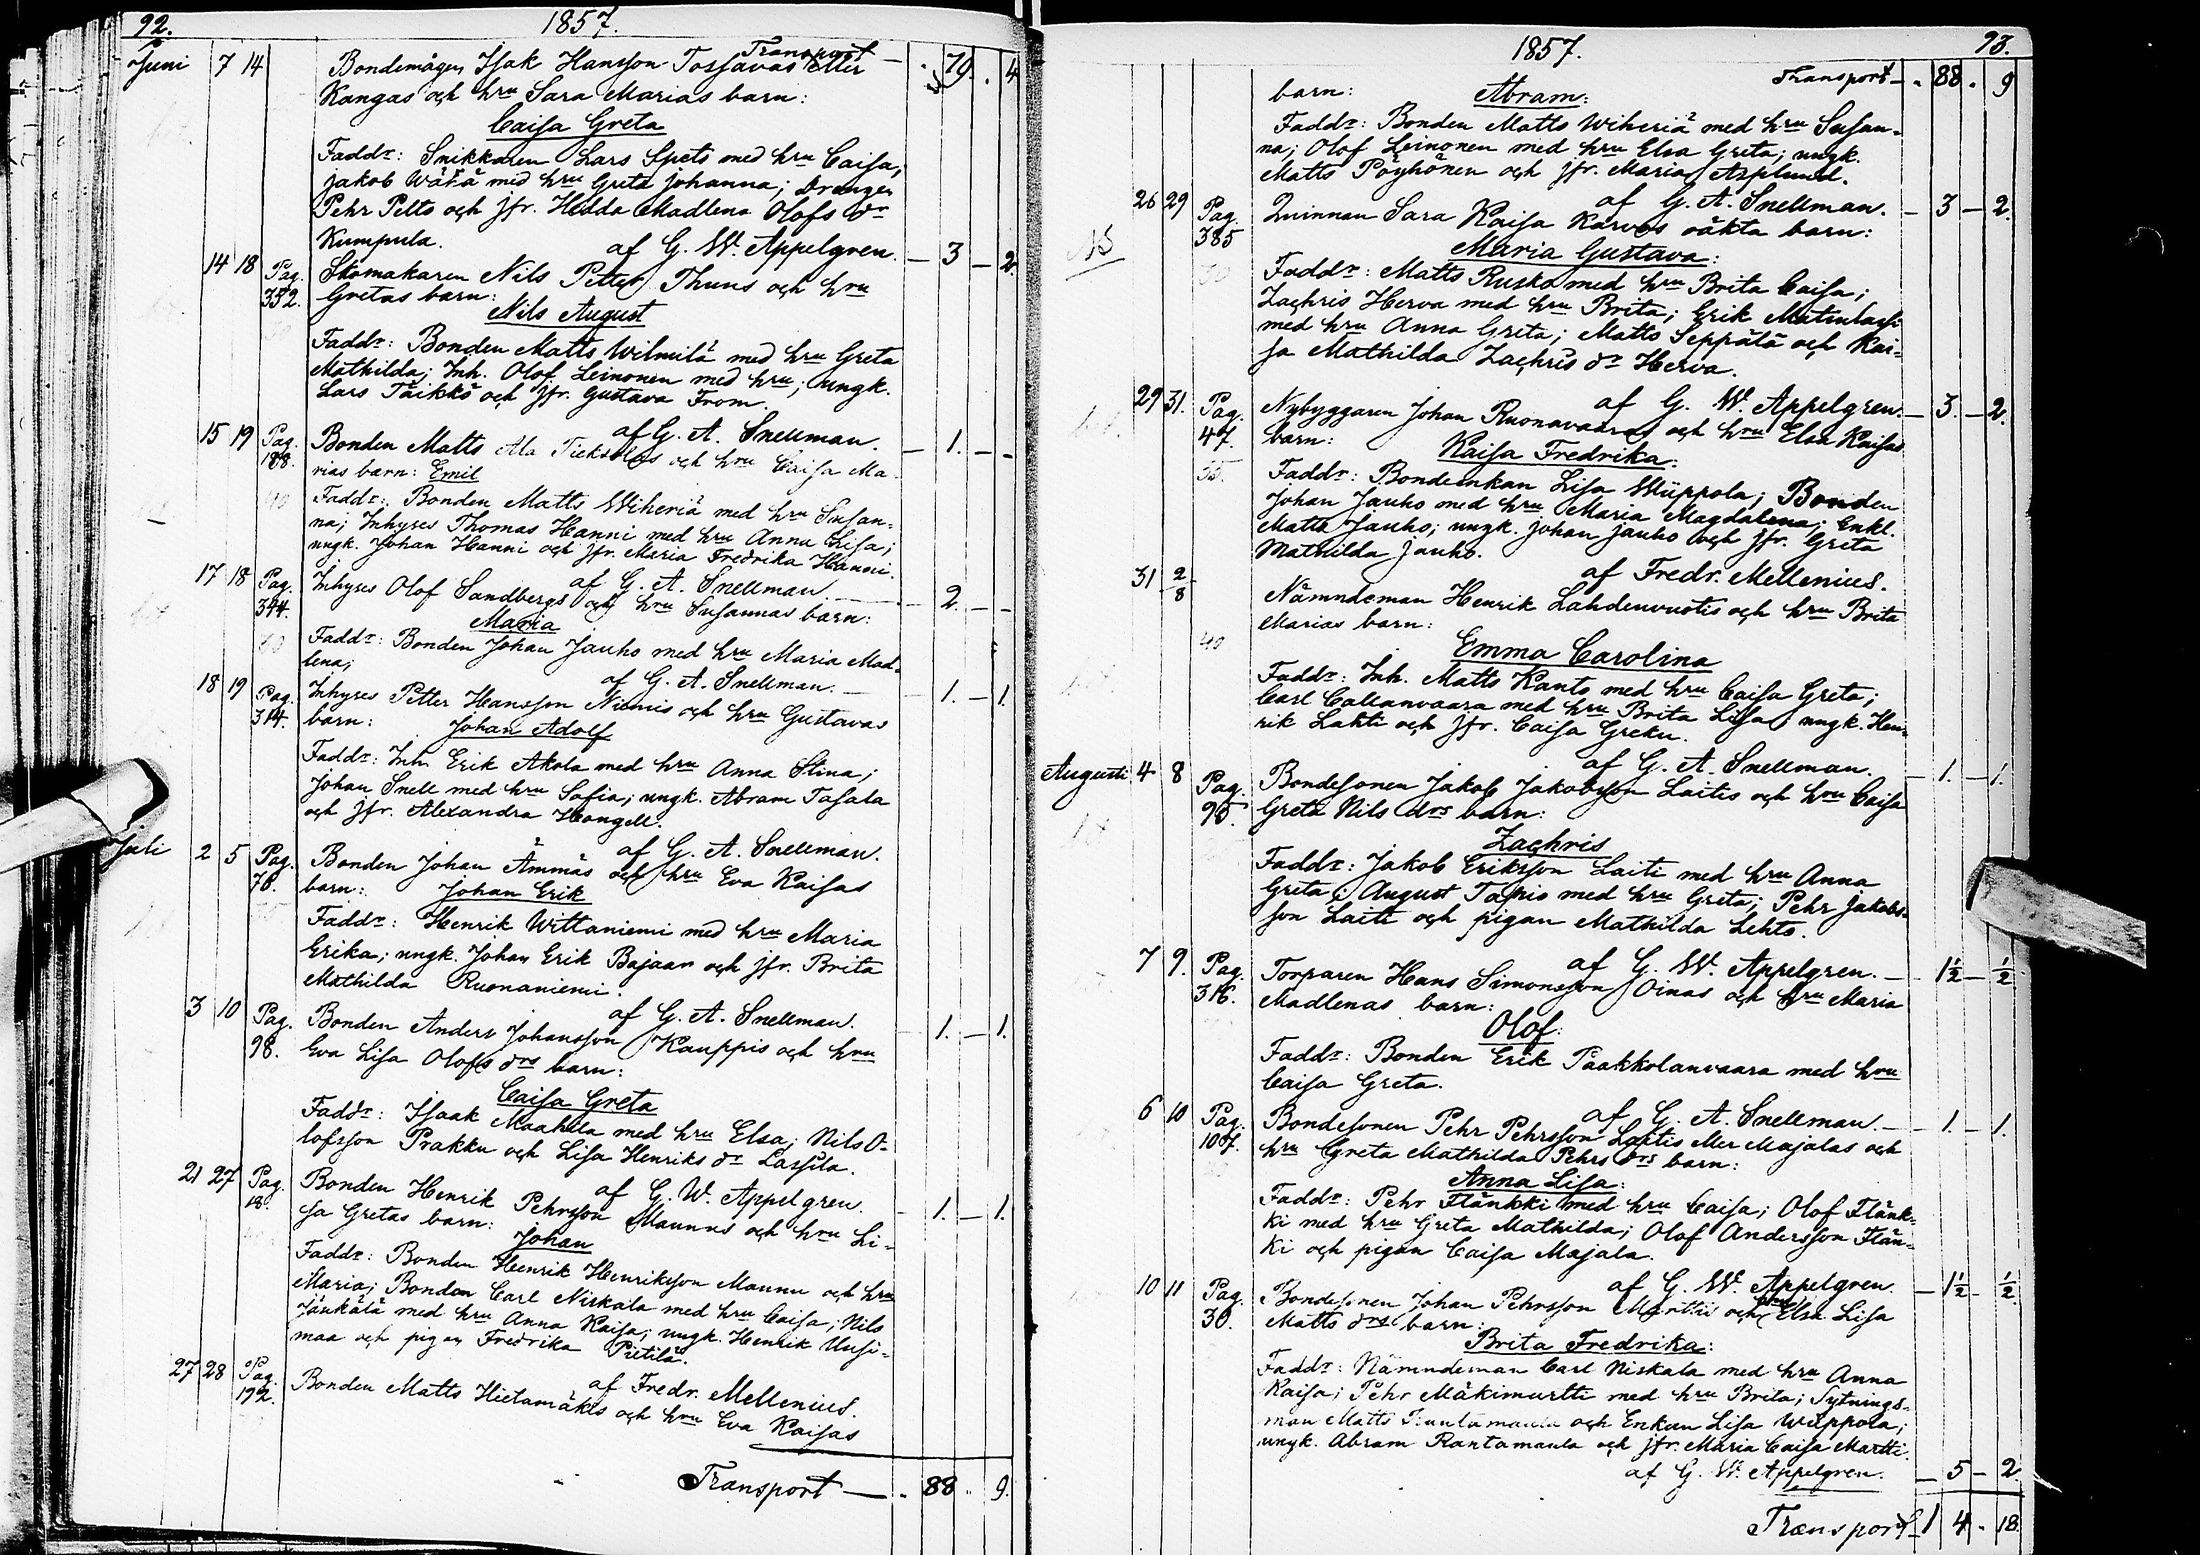 92.
1857.
Transport — . 79. . 4
Juni 7 14 Bondemågen Isak Hansson Tossavas eller
Kangas och hru Sara Marias barn:
Caisa Greta
Faddr: Snikkaren Lars Spets med hru Caisa,
Jakob Wätä med hru Greta Johanna; Drengen
Pehr Pelto och jfr. Hedda Madlena Olofs dr
Kumpula. af G. W. Appelgren. — 3 — 2
14 18 Pag. 352. Skomakaren Nils Petter Thuns och hru
Gretas barn:
Nils August
Faddr: Bonden Matts Wilmilä med hru Greta
Mathilda; Inh. Olof Leinonen med hru; ungk.
Lars Täikkö och jfr. Gustava From.
af G. A. Snellman. — 1. — —
15 19 Pag. 188. Bonden Matts Ala Tieksolas och hru Caisa Ma-
rias barn: Emil
40 Faddr: Bonden Matts Wiheriä med hru Susan-
na; Inhyses Thomas Hanni med hru Anna Lisa;
ungk. Johan Hanni och jfr. Maria Fredrika Hanni.
af G. A. Snellman. — 2. — —
17 18 Pag. 344. Inhyses Olof Sandbergs och hru Susannas barn:
Maria
Faddr: Bonden Johan Jauho med hru Maria Mad-
lena;
af G. A. Snellman. — 1. — 1.
18 19 Pag. 314. Inhyses Petter Hansson Niemis och hru Gustavas
barn: Johan Adolf
Faddr: Inh. Erik Akola med hru Anna Stina;
Johan Snell med hru Sofia; ungk. Abram Tasala
och jfr. Alexandra Hongell.
af G. A. Snellman.
Juli 2 5 Pag. 78. Bonden Johan Ämmäs och hru Eva Kaisas
barn: Johan Erik
Faddr: Henrik Wittaniemi med hru Maria
Erika; ungk. Johan Erik Bajaar och jfr. Brita
Mathilda Ruonaniemi.
af G. A. Snellman. — 1. — 1.
3 10 Pag. 98. Bonden Anders Johansson Kauppis och hru
Eva Lisa Olofs drs barn:
Caisa Greta
Faddr: Isaak Maahila med hru Elsa; Nils O-
lofsson Prakku och Lisa Henriks dr Lassila.
af G. W. Appelgren. — 1. — 1.
21 27 Pag. 18. Bonden Henrik Pehrsson Maunus och hru Li-
sa Gretas barn:
Johan
Faddr: Bonden Henrik Henriksson Maunu och hru
Maria; Bonden Carl Niskala med hru Caisa; Nils
Jänkälä med hru Anna Kaisa; ungk. Henrik Uusi-
maa och pigan Fredrika Pietilä.
af Fredr. Mellenius.
27 28 Pag. 192. Bonden Matts Hietamäkis och hru Eva Kaisas
Transport — . 88 . 9.
1857.
93.
Transport — . 88 . 9
barn: Abram:
Faddr: Bonden Matts Wiheriä med hru Susan-
na; Olof Leinonen med hru Elsa Greta; ungk.
Matts Pöyhönen och jfr. Maria Asplund.
af G. A. Snellman. — 3 — 2.
26 29 Pag. 385 Quinnan Sara Kaisa Karvos oäkta barn:
NB
Maria Gustava:
Faddr: Matts Rusko med hru Brita Caisa;
Zachris Herva med hru Brita; Erik Matinlassi
med hru Anna Greta; Matts Seppälä och Kai-
sa Mathilda Zachris dr Herva.
af G. W. Appelgren — 3. — 2.
29 31. Pag. 47. Nybyggaren Johan Ruonavaaras och hru Elsa Kaisas
barn: Kaisa Fredrika:
Faddr: Bondeenkan Lisa Wiippola; Bonden
Johan Jauho med hru Maria Magdalena; Enkl.
Matts Jauho; ungk. Johan Jauho och jfr. Greta
Mathilda Jauho.
af Fredr. Mellenius.
31 2/8 Nämndeman Henrik Lahdenvuotis och hru Brita
Marias barn:
40 Emma Carolina
Faddr: Inh. Matts Kanto med hru Caisa Greta;
Carl Callanvaara med hru Brita Lisa; ungk. Hen-
rik Lahti och jfr. Caisa Greku.
af G. A. Snellman. — 1. — 1.
Augusti 4 8 Pag. 95. Bondesonen Jakob Jakobsson Laitis och hru Caisa
Greta Nils drs barn:
Zachris
Faddr: Jakob Eriksson Laiti med hru Anna
Greta; August Tapio med hru Greta; Pehr Jakobs-
son Laiti och pigan Mathilda Lehto.
af G. W. Appelgren. — 1½ — ½
7 9. Pag. 316. Torparen Hans Simonsson Oinas och hru Maria
Madlenas barn:
Olof:
Faddr: Bonden Erik Paakkolanvaara med hru
Caisa Greta.
af G. A. Snellman. — 1. — 1.
6 10 Pag. 107. Bondesonen Pehr Pehrsson Laitis eller Majalas och
hru Greta Mathilda Pehrs drs barn:
Anna Lisa:
Faddr: Pehr Flänkki med hru Caisa; Olof Flänk-
ki med hru Greta Mathilda; Olof Andersson Flän-
ki och pigan Caisa Majala.
af G. W. Appelgren. — 1½ — ½
10 11 Pag. 30. Bondesonen Johan Pehrsson Marttis och hru Elsa Lisa
Matts drs barn:
Brita Fredrika:
Faddr: Nämndeman Carl Niskala med hru Anna
Kaisa; Pehr Mäkimartti med hru Brita; Sytnings-
man Matts Rantamaula och Enkan Lisa Wiippola;
ungk. Abram Rantamaula och jfr. Maria Caisa Martti.
af G. W. Appelgren. — 5 — 2.
Transport 1 4 . 18.